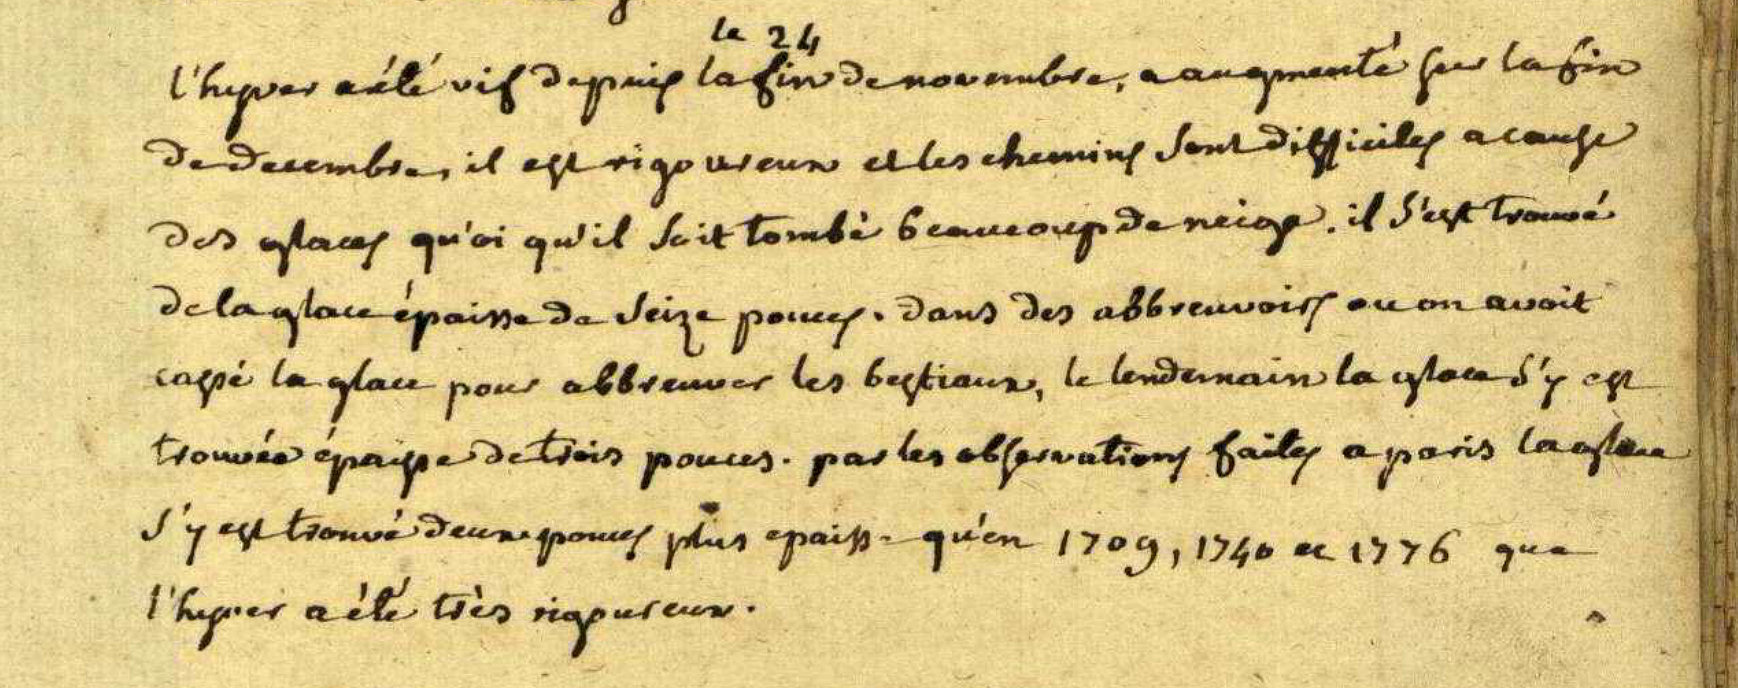 le 24
l'hyver a été vif depuis la fin de novembre, a augmenté sur la fin
de decembre, il est rigoureux et les chemins sont difficiles a cause
des glaces qu'oi qu'il soit tombé beaucoup de neige. il s'est trouvé
de la glace épaisse de seize pouces. dans des abbreuvoirs ou on avoit
cassé la glace pour abbreuver les bestiaux, le lendemain la glace s'y est
trouvée épaisse de trois pouces. par les observations faites a paris la glace
s'y est trouvé deux pouces plus epaisse qu'en 1709, 1740 et 1776 que
l'hyver a été très rigoureux.